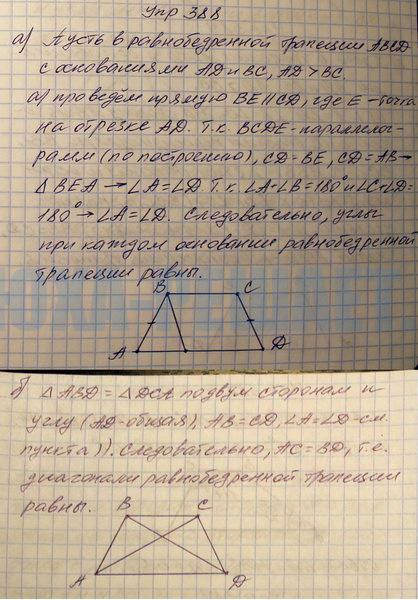 Упр 388
а) Пусть в равнобедренной трапеции ABCD
с основаниями AD и BC, AD > BC.
а) проведем прямую BE ∥ CD, где E - точка
на отрезке AD. Т.к. BCDE - параллело-
грамм (по построению), CD = BE, CD = AB →
△ BEA → ∠A = ∠D. Т.к. ∠A + ∠B = 180° и ∠C + ∠D =
180° → ∠A = ∠D. Следовательно, углы
при каждом основании равнобедренной
трапеции равны.
B C
A D
б) △ ABD = △ DCA по двум сторонам и
углу (AD - общая), AB = CD, ∠A = ∠D - см.
пункта)). Следовательно, AC = BD, т.е.
диагонали равнобедренной трапеции
равны.
B C
A D